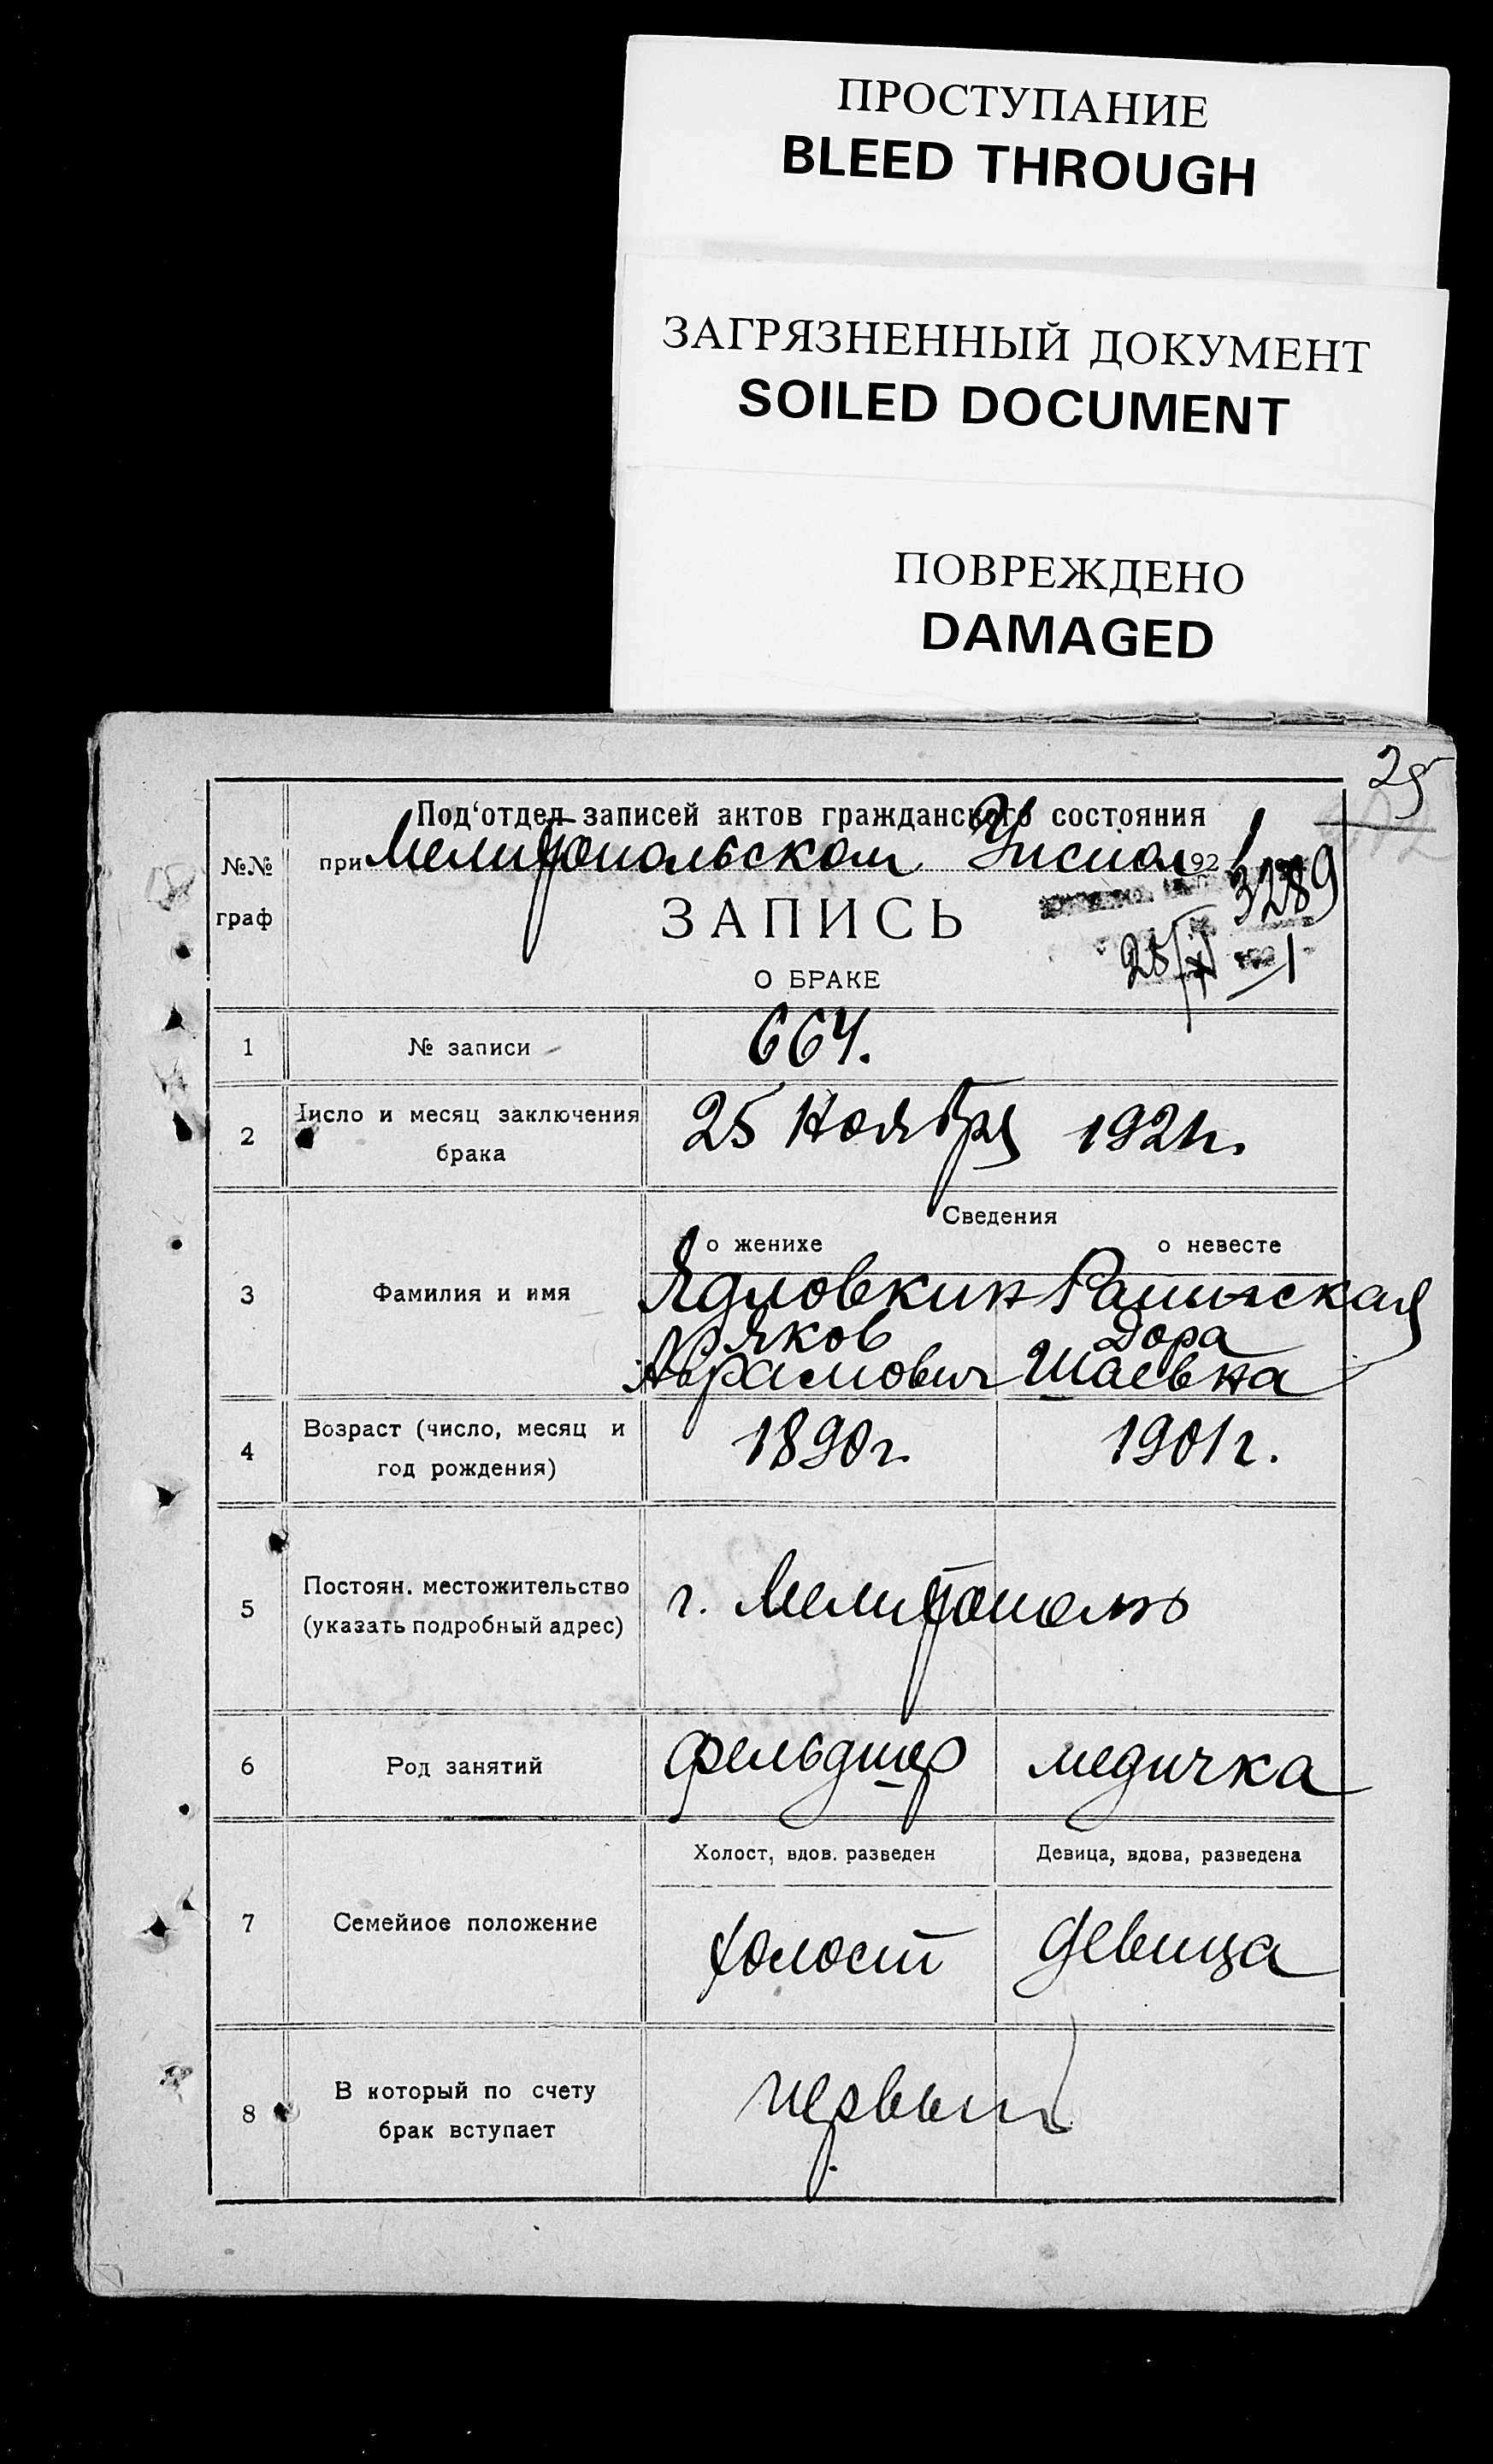 ПРОСТУПАНИЕ
BLEED THROUGH
ЗАГРЯЗНЕННЫЙ ДОКУМЕНТ
SOILED DOCUMENT
ПОВРЕЖДЕНО
DAMAGED
25
Под‘отдел записей актов гражданского состояния
№№ граф
при Мелитопольском 192
3289
ЗАПИСЬ
О БРАКЕ
1 № записи 664.
2 Число и месяц заключения брака 25 Ноября 1921г.
Сведения
о женихе о невесте
3 Фамилия и имя Ядловкин
Яков Дора
Абрамович Шаевна
4 Возраст (число, месяц и год рождения) 1890г. 1901г.
5 Постоян. местожительство (указать подробный адрес) г. Мелитополь
6 Род занятий фельдшер медичка
Холост, вдов. разведен Девица, вдова, разведена
7 Семейное положение холост девица
8 В который по счету брак вступает первый